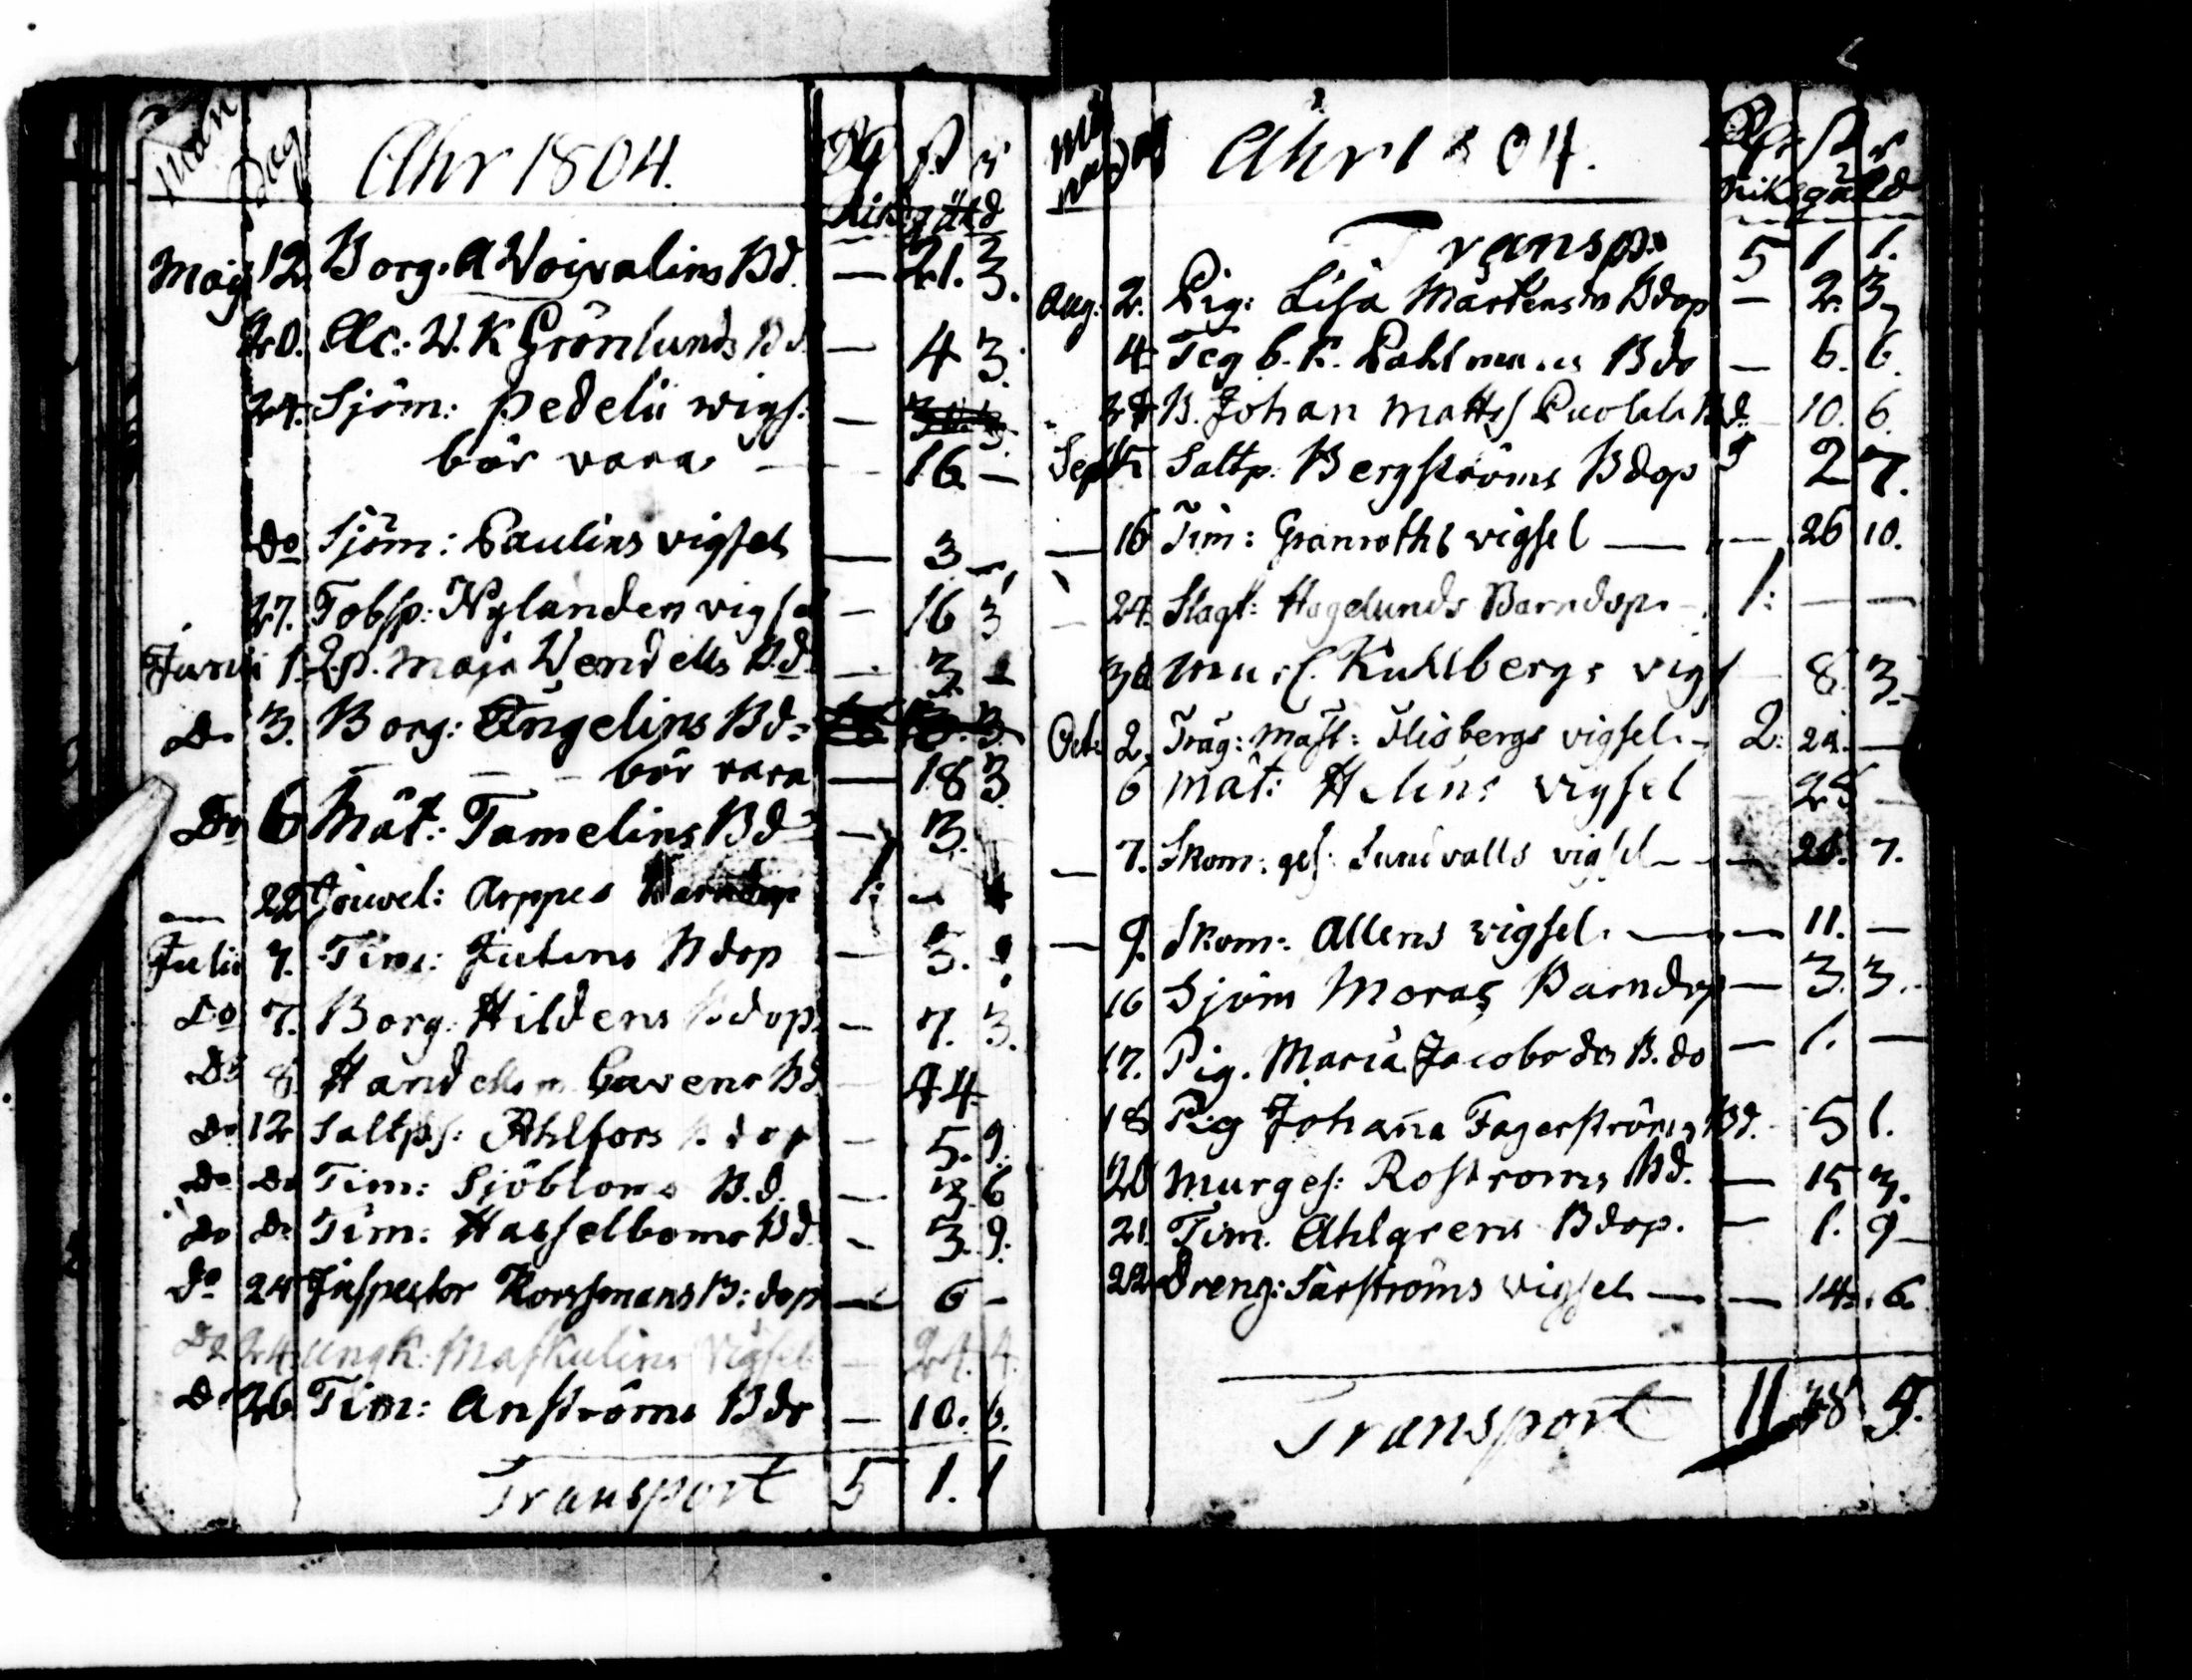 Mån Dag Åhr 1804. Rd ß r
Riksgäld
Maij 12. Borg. A Woivalins Bd. — 21. 3.
20. Ac: W. K Grönlunds Bd. — 4 3.
24. Sjöm: Pedelii wigs: —
bör vara — 16. —
do Sjöm: Paulins vigsel — 3 —
27. Tobsp: Nylanden vigsel — 16 3
Junii 1. Qp. Maja Wendells B.d. — 3.
Do 3. Borg: Ängelins Bd:
bör vara — 18 3
Do 6 Mät: Tamelins Bd — 3.
— 22 Jouvel: Arppes Barndop 1: —
Julii 7. Tim: Julins Bdop — 3.
Do 7. Borg. Hildens Bdop. — 7. 3.
Do 8. Bd — 44.
Do 12 Saltps: Ahlfors Bdop — 5. 9.
Do Do Tim: Sjöbloms B.d. — 3. 6
Do Do Tim: Hasselboms Bd. — 3. 9.
Do 24 Inspector Korssmans B: dop — 6 —
Do 24. Ungk: Maskulins Vigsel — 24. 4.
Do 26 Tim: Anströms Bdo — 10. 6.
Transport 5 1. 1
Månad Dag Åhr 1804. ß r
Riksgäld
Transp. 5 1 1.
Aug: 2. Pig: Lisa Mårtensdr Bdop — 2. 3
4. Teg b. K. Pahlmans Bdo — 6. 6.
B. Johan Matts Bd. 10. 6.
Sept Saltp. Bergströms Bdop 2 7.
— 16 Tim: Granroths wigsel — — 26 10.
24. Slagt: Hagelunds Barndop. 1: — —
30 Kuhlbergs vigs 8. 3.
Oct: 2. Träg: mäst: Flisbergs vigsel. — 2: —
6 Mät: Helins vigsel —
— 7. Skom: ges: Sundvalls vigsel — — 7.
— 9. Skom: Allens vigsel. — — 11. —
16 Sjöm Moras Barndop — 3. 3.
17. Pig. Maria Jacobsdr B. do — 1. —
18 Pig Johaña Fagerströms Bd. 5 1.
20 Murges: Rostroms Bd. — 15 3.
21. Tim. Ahlgrens Bdop. — 1. 9
22 Dreng: Särströms vigsel — — 14. 6.
Transport 11 48 5.